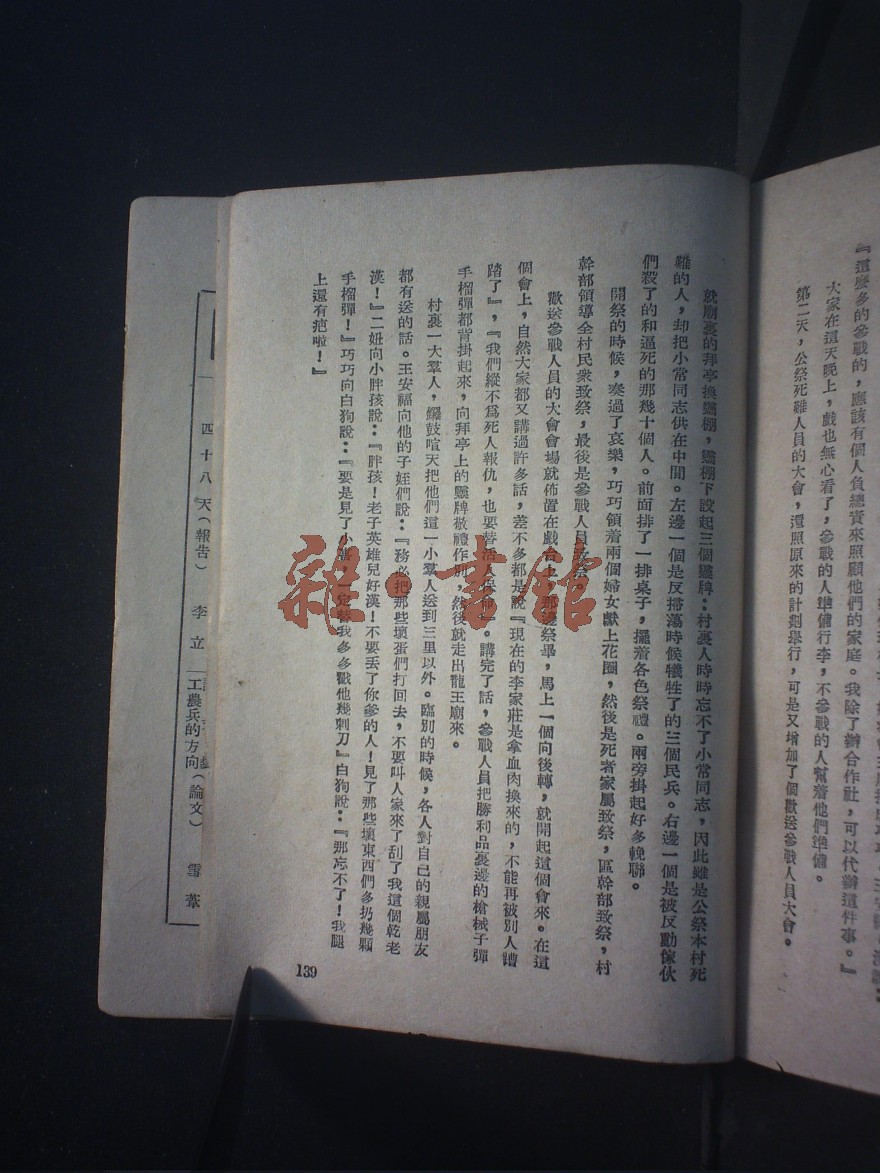 『這麼多的參戰的，應該有個人負總責來照顧他們的家庭。我除了辦合作社，可以代辦這件事。』
大家在這天晚上，戲也無心看了，參戰的人準備行李，不參戰的人幫着他們準備。
第二天，公祭死難人員的大會，還照原來的計劃舉行，可是又增加了個歡送參戰人員大會。
就廟裏的拜亭換靈棚，靈棚下設起三個靈牌：村裏人時時忘不了小常同志，因此雖是公祭本村死
難的人，却把小常同志供在中間。左邊一個是反掃蕩時候犧牲了的三個民兵。右邊一個是被反動傢伙
們殺了的和逼死的那幾十個人。前面排了一排桌子，擺着各色祭禮。兩旁掛起好多輓聯。
開祭的時候，奏過了哀樂，巧巧領着兩個婦女獻上花圈，然後是死者家屬致祭，區幹部致祭，村
幹部領導全村民衆致祭，最後是參戰人員致祭。
歡送參戰人員的大會會場就佈置在戲台上，那邊祭畢，馬上一個向後轉，就開起這個會來。在這
個會上，自然大家都又講過許多話，差不多都是說『現在的李家莊是拿血肉換來的，不能再被別人蹧
踏了』，『我們縱不爲死人報仇，也要替活人保命』。講完了話，參戰人員把勝利品裏邊的槍械子彈
手榴彈都背掛起來，向拜亭上的靈牌敬禮作別，然後就走出龍王廟來。
村裏一大羣人，鑼鼓喧天把他們這一小羣人送到三里以外。臨別的時候，各人對自己的親屬朋友
都有送的話。王安福向他的子姪們說：『務必把那些壞蛋們打回去，不要叫人家來了刮了我這個乾老
漢！』二妞向小胖孩說：『胖孩！老子英雄兒好漢！不要丟了你爹的人！見了那些壞東西們多扔幾顆
手榴彈！』巧巧向白狗說：『要是見了小喜，一定替我多多戳他幾刺刀』白狗說：『那忘不了！我腿
上還有疤啦！』
139
四十八天（報告） 李立
工農兵的方向（論文） 雪葦
雜·書館